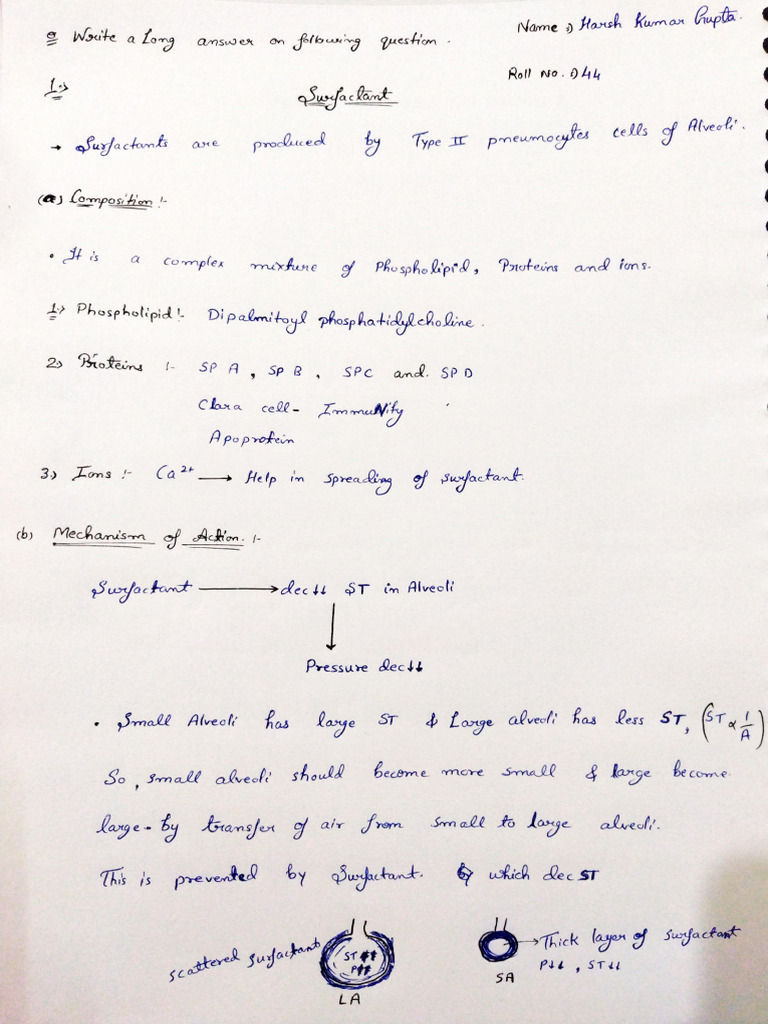 Q Write a Long answer on following question.
Name :) Harsh Kumar Gupta.
Roll No. :) 44
1.)
Surfactant
→ Surfactants are produced by Type II pneumocytes cells of Alveoli.
(a) Composition :-
• It is a complex mixture of Phospholipid, Proteins and ions.
1.) Phospholipid :- Dipalmitoyl phosphatidylcholine.
2.) Proteins :- SP A, SP B, SPC and SP D
Clara cell - Immunity
Apoprotein
3.) Ions :- Ca²⁺ → Help in spreading of surfactant.
(b) Mechanism of Action. :-
Surfactant → dec↓↓ ST in Alveoli
↓
Pressure dec↓↓
• Small Alveoli has large ST & Large alveoli has less ST, (ST ∝ 1/A)
So, small alveoli should become more small & large become
large - by transfer of air from small to large alveoli.
This is prevented by Surfactant. which dec ST
scattered surfactant
ST
P
LA
→ Thick layer of surfactant
P↓↓, ST↓↓
SA